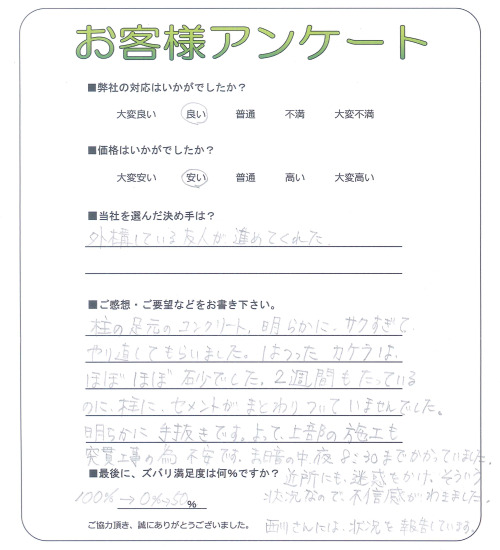 お客様アンケート
■弊社の対応はいかがでしたか？
大変良い 良い 普通 不満 大変不満
■価格はいかがでしたか？
大変安い 安い 普通 高い 大変高い
■当社を選んだ決め手は？
外構している友人が進めてくれた
■ご感想・ご要望などをお書き下さい。
柱の足元のコンクリート、明らかに、サクすぎて、
やり直してもらいました。はつった カケラは、
ほぼ ほぼ 石少でした。2週間もたっている
のに、柱に、セメントが まとわりついていませんでした。
明らかに 手抜きです。よって、上部の施工も
突貫工事の為 不安です。ま暗の中、夜 8:30までかかっていました。
近所にも、迷惑をかけ、そういう
■最後に、ズバリ満足度は何%ですか？
状況なので、不信感がわきました。
100%→0%→50%
ご協力頂き、誠にありがとうございました。
西川さんには、状況を報告しています。